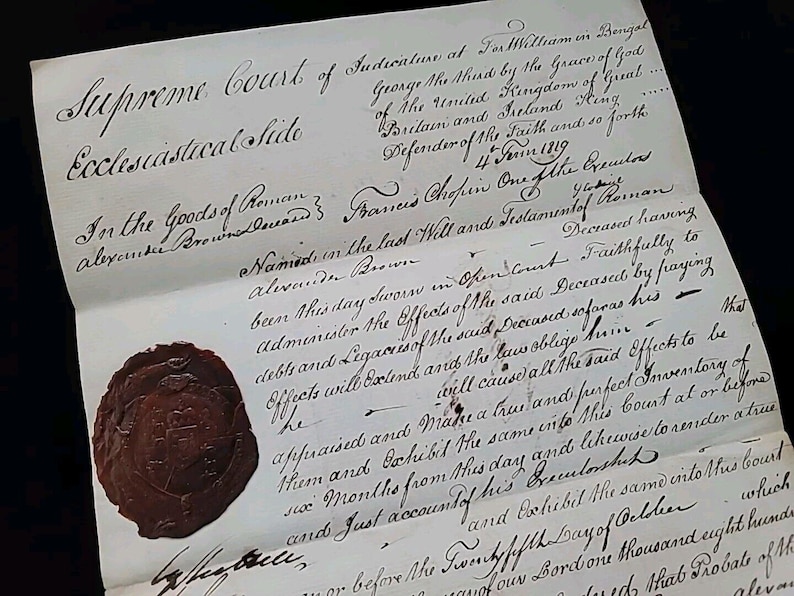 Supreme Court of Judicature at Fort William in Bengal
Ecclesiastical Side
George the third by the Grace of God
of the United Kingdom of Great ...
Britain and Ireland King .....
Defender of the Faith and so forth
4th Term 1819
In the Goods of Roman
Alexander Brown Deceased }
Francis Chopin One of the Executors
Named in the last Will and Testament of Roman
Alexander Brown Deceased having
been this day Sworn in Open Court Faithfully to
administer the Effects of the said Deceased by paying
debts and Legacies of the said Deceased so far as his —
Effects will Extend and the law oblige him — that
he — will cause all the said Effects to be
appraised and Make a true and perfect Inventory of
them and Exhibit the same into this Court at or before
six Months from this day and likewise to render a true
and Just account of his Executorship
and Exhibit the same into this Court
or before the Twenty fifth Day of October which
year of our Lord one thousand eight hundr
that Probate of th